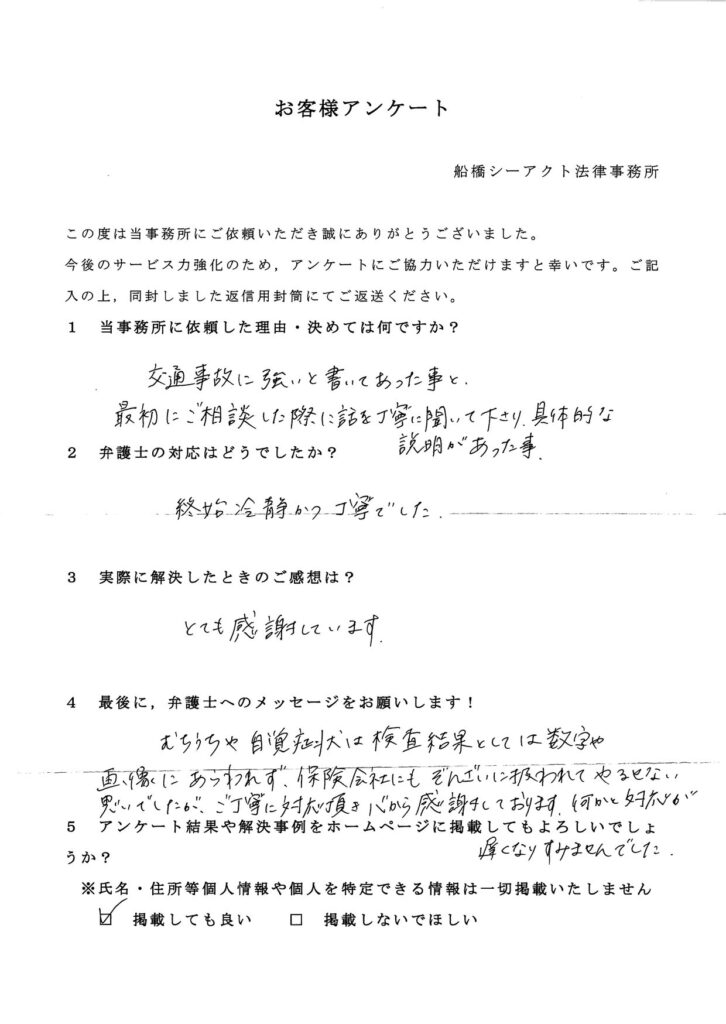 お客様アンケート
船橋シーアクト法律事務所
この度は当事務所にご依頼いただき誠にありがとうございました。
今後のサービス力強化のため，アンケートにご協力いただけますと幸いです。ご記
入の上，同封しました返信用封筒にてご返送ください。
1 当事務所に依頼した理由・決めては何ですか？
交通事故に強いと書いてあった事と、
最初にご相談した際に話を丁寧に聞いて下さり、具体的な
説明があった事、
2 弁護士の対応はどうでしたか？
終始冷静かつ丁寧でした。
3 実際に解決したときのご感想は？
とても感謝しています。
4 最後に，弁護士へのメッセージをお願いします！
むちうちや自覚症状は検査結果としては数字や
画像にあらわれず、保険会社にもぞんざいに扱われてやるせない
思いでしたが、ご丁寧に対応頂き心から感謝しております。何かと対応が
遅くなりすみませんでした。
5 アンケート結果や解決事例をホームページに掲載してもよろしいでしょ
うか？
※氏名・住所等個人情報や個人を特定できる情報は一切掲載いたしません
☑ 掲載しても良い □ 掲載しないでほしい